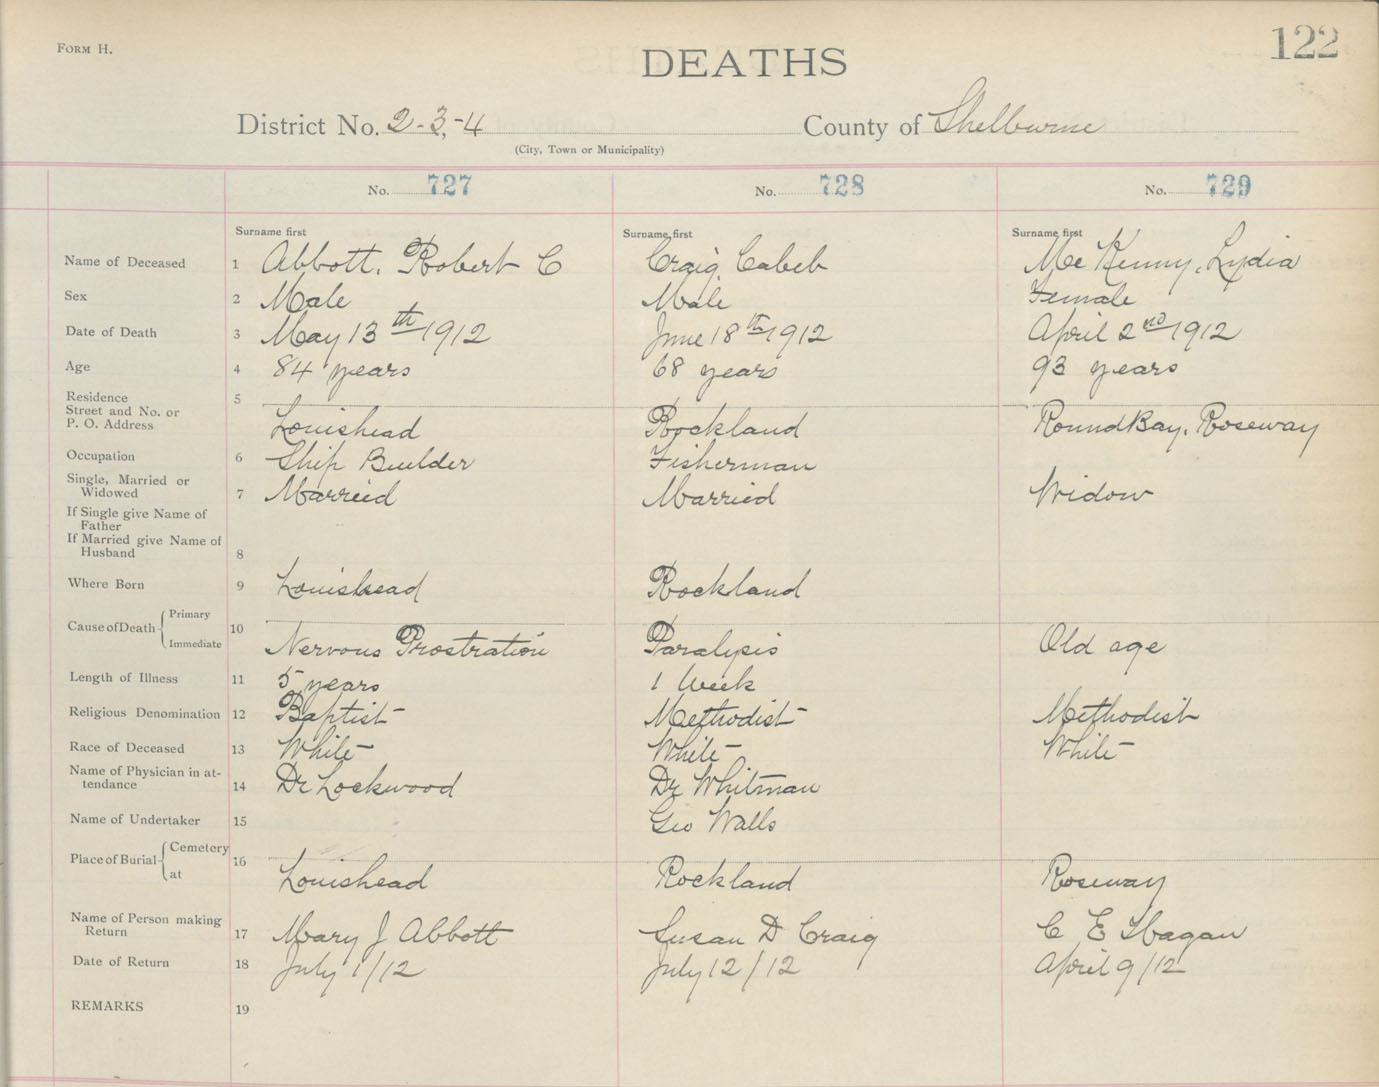 FORM H.
DEATHS
122
District No. 2-3,-4 County of Shelburne
(City, Town or Municipality)
No. 727 No. 728 No. 729
Surname first Surname first Surname first
Name of Deceased 1 Abbott, Robert C Craig, Cabeb McKenny, Lydia
Sex 2 Male Male Female
Date of Death 3 May 13th 1912 June 18th 1912 April 2nd 1912
Age 4 84 years 68 years 93 years
Residence 5
Street and No. or
P. O. Address Louishead Rockland Round Bay, Roseway
Occupation 6 Ship Builder Fisherman
Single, Married or
Widowed 7 Married Married Widow
If Single give Name of
Father
If Married give Name of
Husband 8
Where Born 9 Louishead Rockland
Cause of Death Primary
10
Immediate Nervous Prostration Paralysis Old age
Length of Illness 11 5 years 1 Week
Religious Denomination 12 Baptist Methodist Methodist
Race of Deceased 13 White White White
Name of Physician in at-
tendance 14 Dr Lockwood Dr Whitman
Name of Undertaker 15 Geo Walls
Place of Burial Cemetery 16
at Louishead Rockland Roseway
Name of Person making
Return 17 Mary J Abbott Susan D Craig C E Hagan
Date of Return 18 July 1/12 July 12/12 April 9/12
REMARKS 19